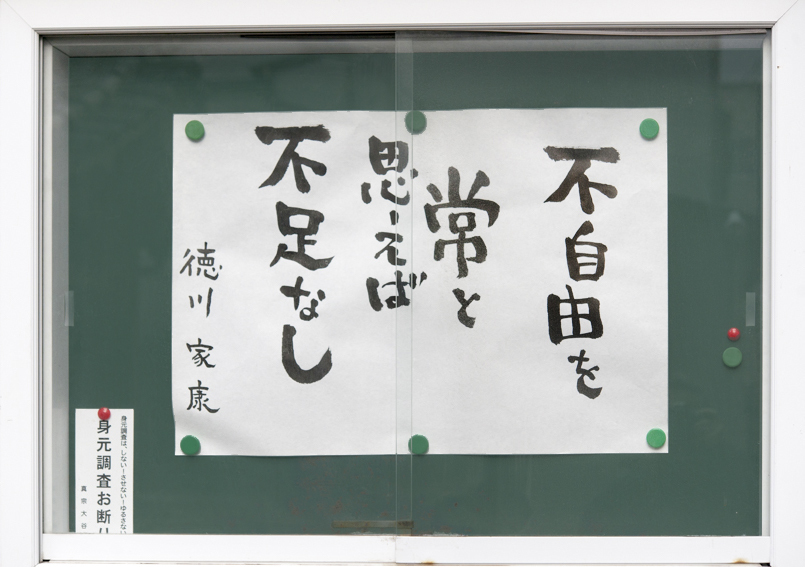 不自由を
常と
思えば
不足なし
徳川 家康
身元調査は、しない！させない！ゆるさない
身元調査お断り
真宗大谷